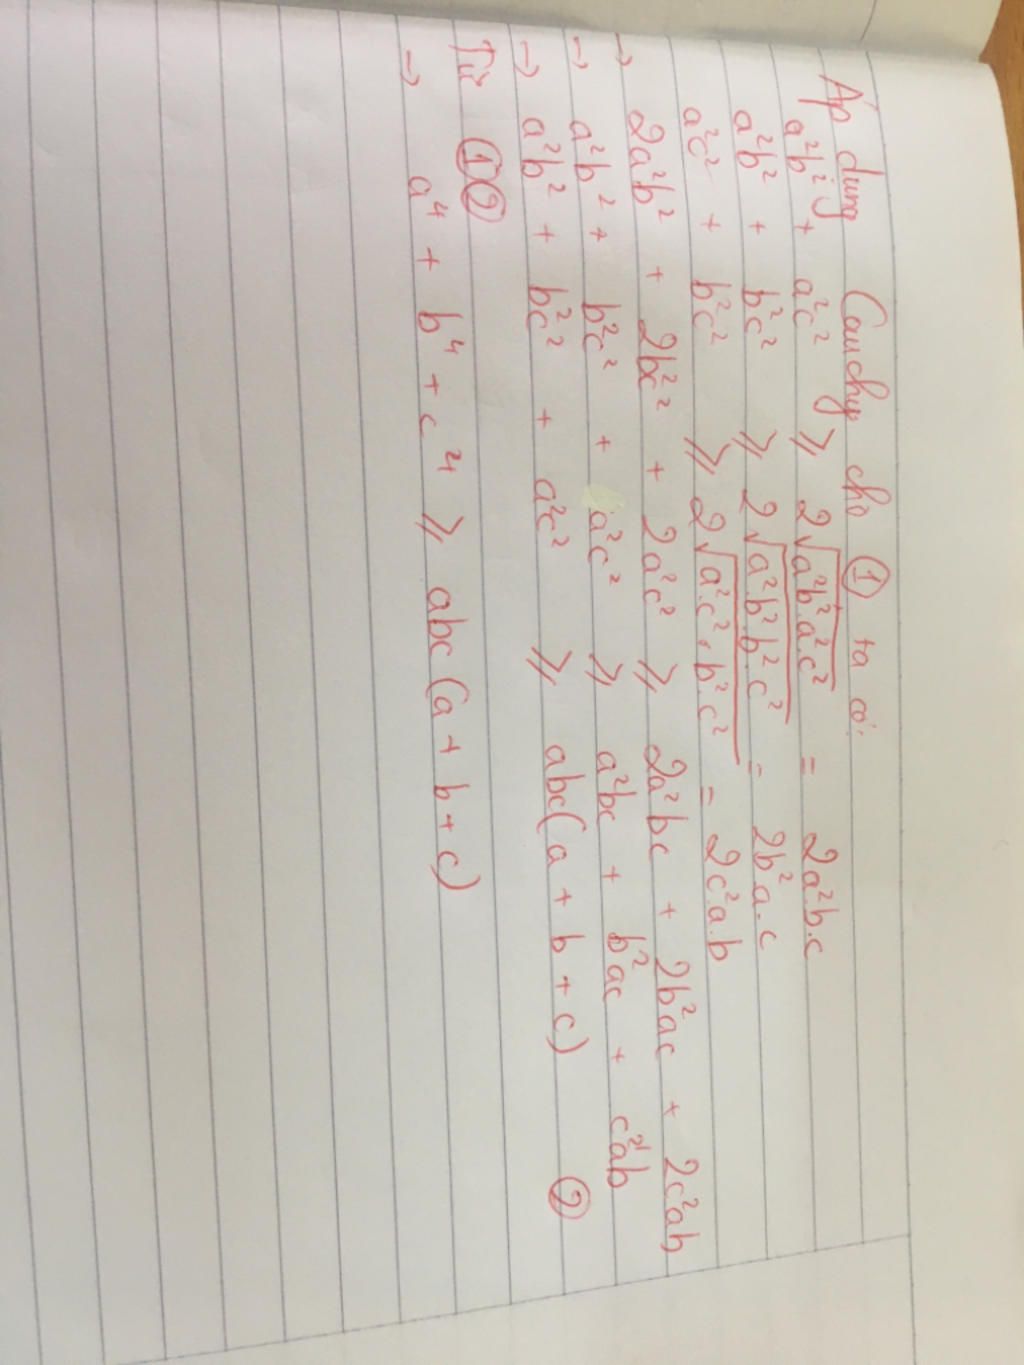 Áp dụng Cauchy cho ① ta có:
a²b² + a²c² ⩾ 2√a²b².a².c² = 2a²b.c
a²b² + b²c² ⩾ 2√a².b².b².c² = 2b²a.c
a²c² + b²c² ⩾ 2√a².c².b².c² = 2c².a.b
→ 2a²b² + 2b²c² + 2a²c² ⩾ 2a²bc + 2b²ac + 2c²ab
→ a²b² + b²c² + a²c² ⩾ a²bc + b²ac + c²ab
→ a²b² + b²c² + a²c² ⩾ abc(a + b + c) ②
Từ ①②
→ a⁴ + b⁴ + c⁴ ⩾ abc(a + b + c)